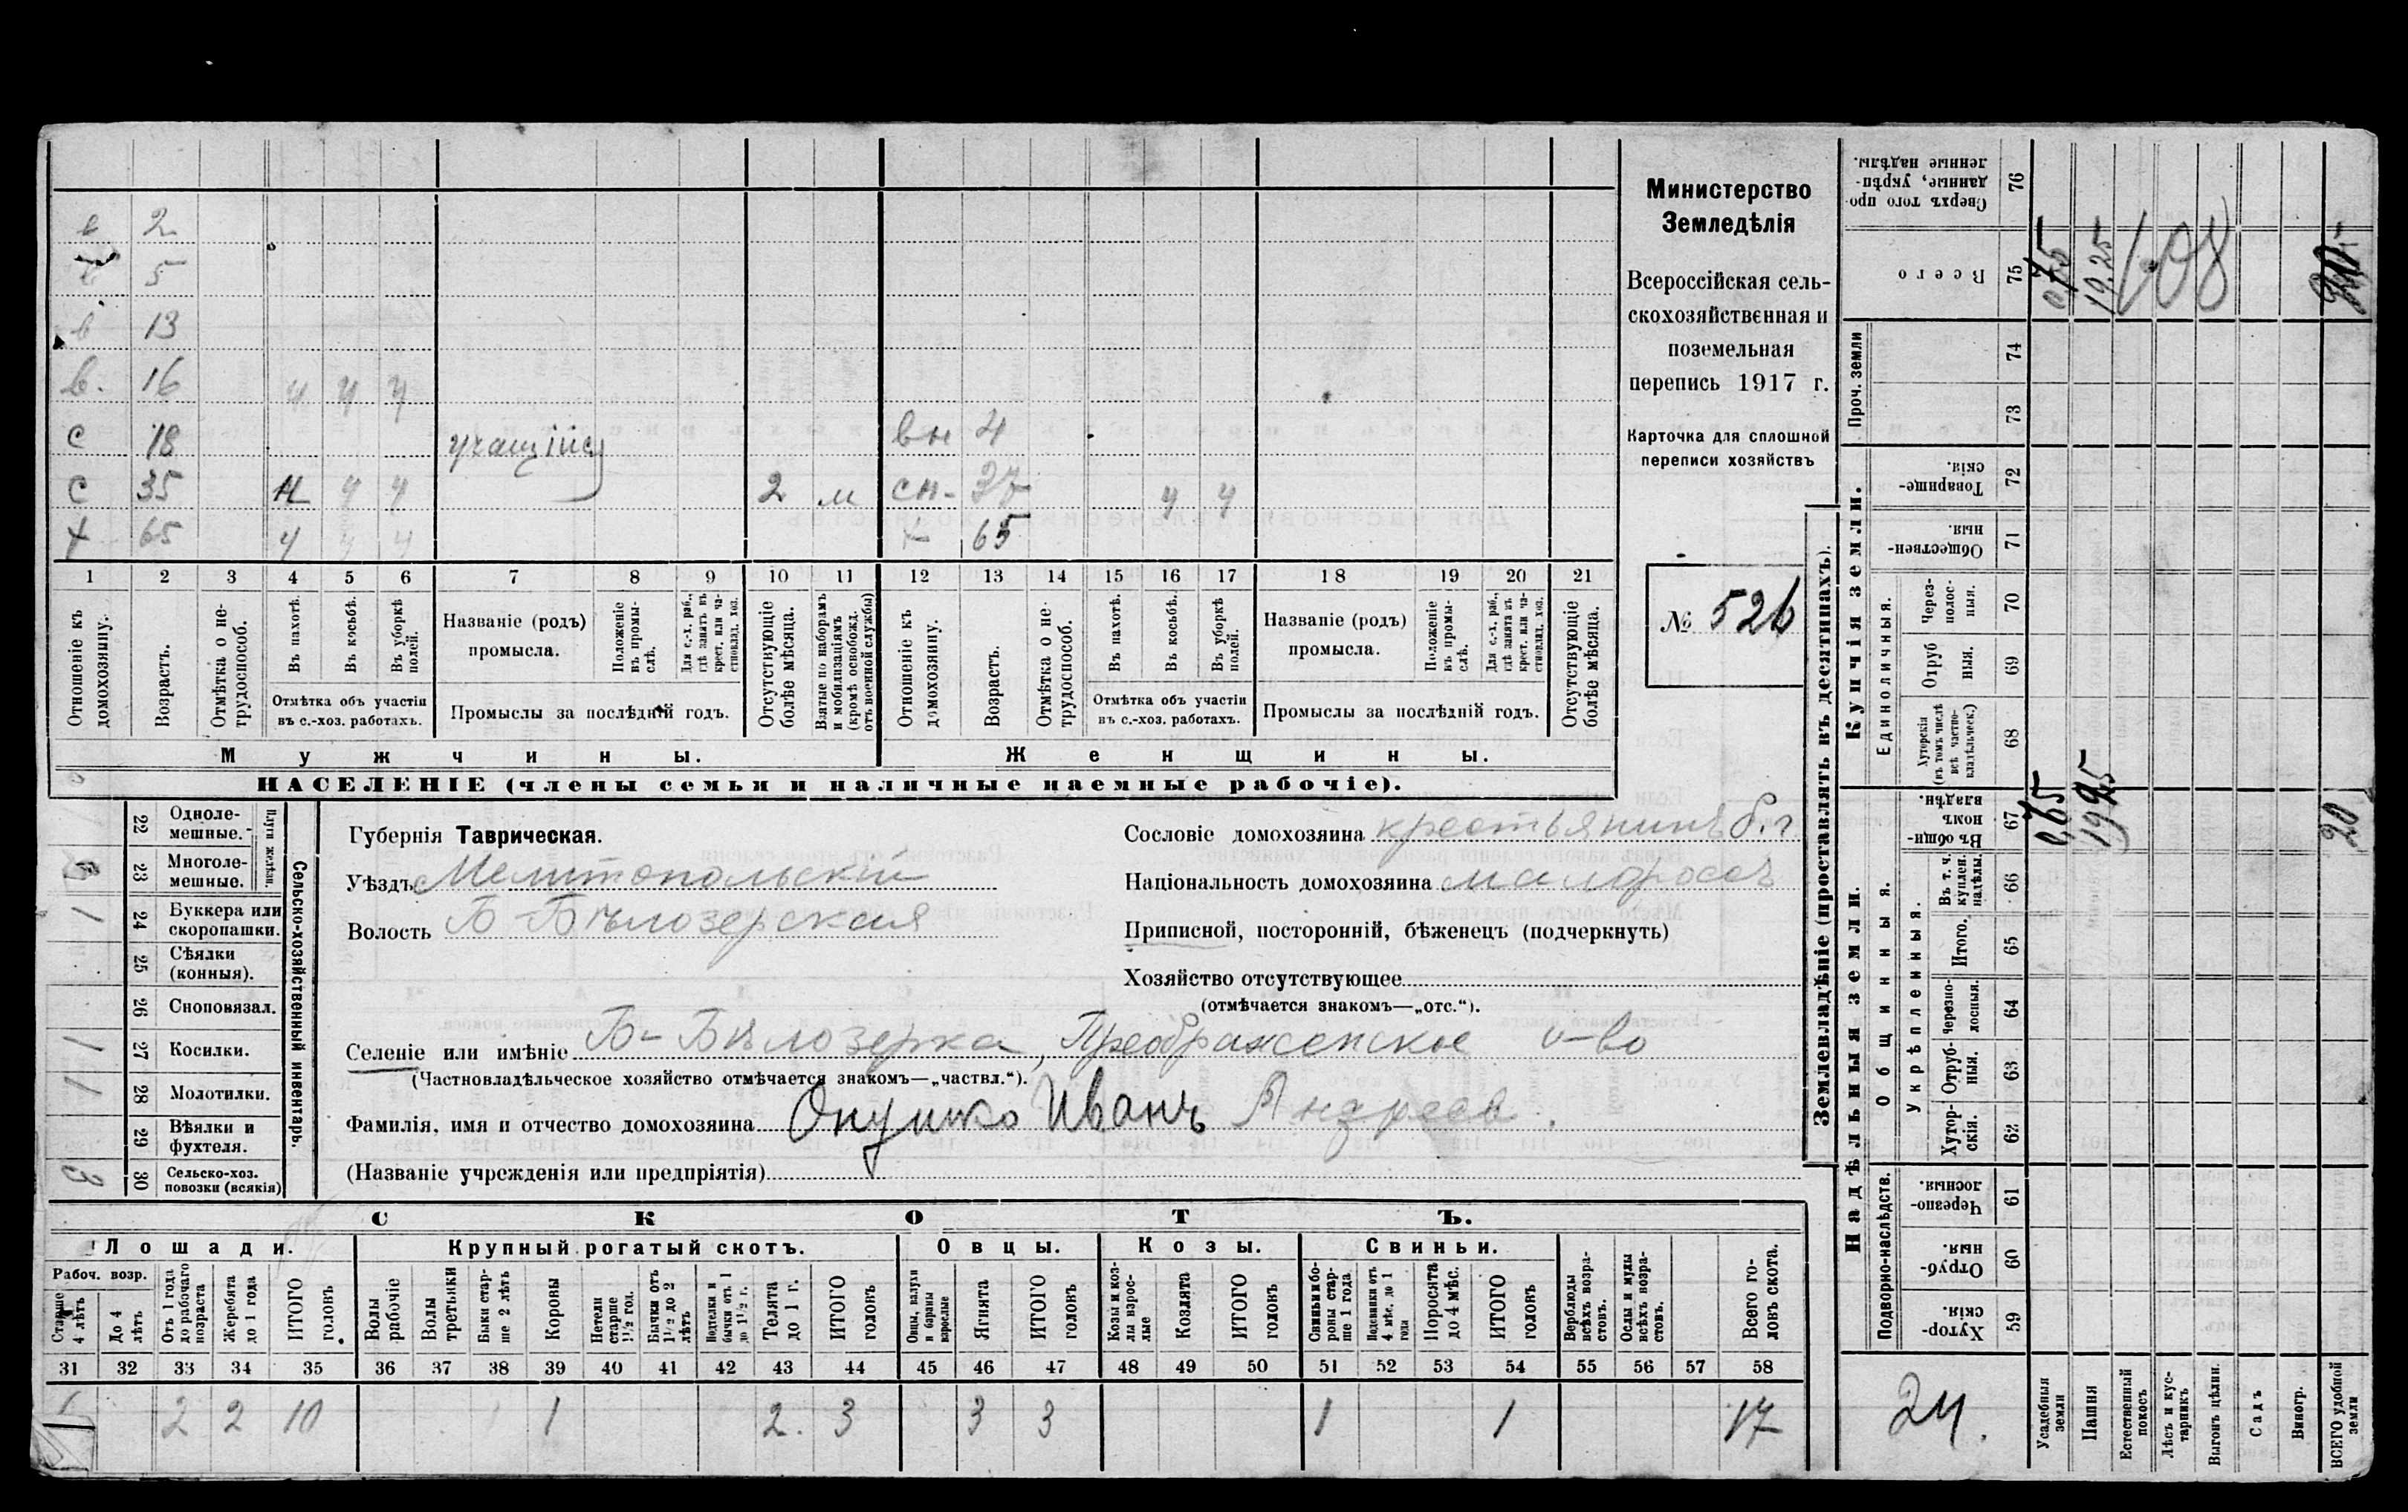 в 2
5
в 13
в. 16 ч ч ч
с 18 учащійся вн 4
с 35 ч ч ч 2 м сн- 37 ч ч
х 65 ч ч ч 65
1 2 3 4 5 6 7 8 9 10 11 12 13 14 15 16 17 18 19 20 21
Отношеніе къ домохозяину.
Возрастъ.
Отмѣтка о не-трудоспособ.
Въ пахотѣ.
Въ косьбѣ.
Въ уборкѣ полей.
Отмѣтка объ участіи въ с.-хоз. работахъ.
Названіе (родъ) промысла.
Положеніе въ промы-слѣ.
Для с.-х. раб., гдѣ занятъ въ крест. или ча-стновлад. хоз.
Промыслы за послѣдній годъ.
Отсутствующіе болѣе мѣсяца.
Взятые по наборамъ и мобилизаціямъ (кромѣ освобожд. отъ военной службы)
Отношеніе къ домохозяину.
Возрастъ.
Отмѣтка о не-трудоспособ.
Въ пахотѣ.
Въ косьбѣ.
Въ уборкѣ полей.
Отмѣтка объ участіи въ с.-хоз. работахъ.
Названіе (родъ) промысла.
Положеніе въ промы-слѣ.
Для с.-х. раб., гдѣ занята въ крест. или ча-стновлад. хоз.
Промыслы за послѣдній годъ.
Отсутствующіе болѣе мѣсяца.
Мужчины. Женщины.
НАСЕЛЕНІЕ (члены семьи и наличные наемные рабочіе).
Министерство
Земледѣлія
Всероссійская сель-
скохозяйственная и
поземельная
перепись 1917 г.
Карточка для сплошной
переписи хозяйствъ
№ 526
Сельско-хозяйственный инвентарь.
Плуги желѣзн.
22 Одноле-мешные.
23 Многоле-мешные.
24 Буккера или скоропашки. 1
25 Сѣялки (конныя).
26 Сноповязал.
27 Косилки. 1
28 Молотилки. 1
29 Вѣялки и фухтеля.
30 Сельско-хоз. повозки (всякія) 3
Губернія Таврическая.
Уѣздъ Мелитопольскій
Волость Б-Бѣлозерская
Сословіе домохозяина крестьянинъ б.г.
Національность домохозяина малороссъ
Приписной, посторонній, бѣженецъ (подчеркнуть)
Хозяйство отсутствующее
(отмѣчается знакомъ—„отс.“).
Селеніе или имѣніе Б-Бѣлозерка, Преображенское о-во
(Частновладѣльческое хозяйство отмѣчается знакомъ—„частвл.“).
Фамилія, имя и отчество домохозяина Онушко Иванъ Андреев.
(Названіе учрежденія или предпріятія)
СКОТЪ.
Лошади. Крупный рогатый скотъ. Овцы. Козы. Свиньи.
Рабоч. возр.
Старше 4 лѣтъ
До 4 лѣтъ
Отъ 1 года до рабочаго возраста
Жеребята до 1 года
ИТОГО головъ
Волы рабочіе
Волы третьяки
Быки стар-ше 2 лѣтъ
Коровы
Нетели старше 1½ год.
Бычки отъ 1½ до 2 лѣтъ
Подтелки и бычки отъ 1 до 1½ г.
Телята до 1 г.
ИТОГО головъ
Овцы, валухи и бараны взрослые
Ягнята
ИТОГО головъ
Козы и коз-лы взрос-лые
Козлята
ИТОГО головъ
Свиньи и бо-ровы стар-ше 1 года
Подсвинки отъ 4 мѣс. до 1 года
Поросята до 4 мѣс.
ИТОГО головъ
Верблюды всѣхъ возра-стовъ.
Ослы и мулы всѣхъ возра-стовъ.
Всего го-ловъ скота.
31 32 33 34 35 36 37 38 39 40 41 42 43 44 45 46 47 48 49 50 51 52 53 54 55 56 57 58
2 2 10 1 2. 3 3 3 1 1 17
Землевладѣніе (проставлять въ десятинахъ).
Сверхъ того про-данные, укрѣп-ленные надѣлы. 76
Всего 75 0,75 19,25 108
Проч. земли 74 73
Купчія земли.
Товарище-скія. 72
Обществен-ныя. 71
Единоличныя.
Через-полос-ныя. 70
Отруб-ныя. 69
Хуторскія (въ томъ числѣ всѣ частно-владѣльческ.) 68
Надѣльныя земли.
Общинныя.
Въ общи-номъ владѣн. 67 0,75 19,25 20
Укрѣпленныя.
Въ т. ч. куплен. надѣлы. 66
Итого. 65
Черезпо-лосныя. 64
Отруб-ныя. 63
Хутор-скія. 62
Подворно-наслѣдств.
Черезпо-лосныя. 61
Отруб-ныя. 60
Хутор-скія. 59
24.
Усадебныя земли
Пашня
Естественный покосъ
Лѣсъ и кус-тарникъ
Выгонъ цѣлин.
Садъ
Виногр.
ВСЕГО удобной земли